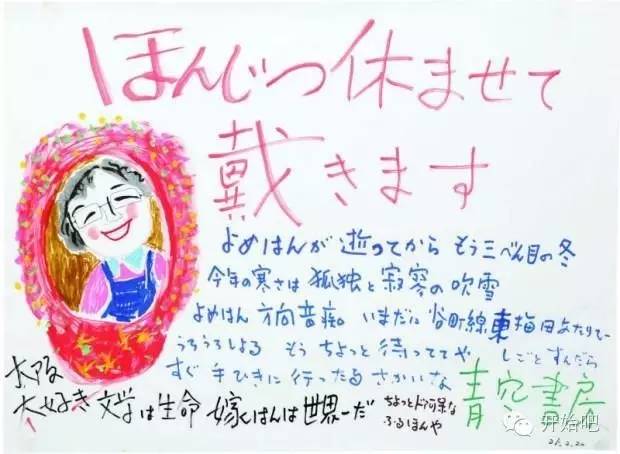 ほんじつ休ませて
戴きます
よめはんが逝ってから もう三べん目の冬
今年の寒さは 孤独と寂寥の吹雪
よめはん 方向音痴。いまだに 谷町線東梅田あたりで
うろうろしよる もう ちょっと 待っててや しごとすんだら
すぐ 手ひきに 行ったるさかいな
青空書房
大阪
大好き 文学は生命 嫁はんは世界一だ
ちょっとド阿呆な
ふるほんや
开始吧